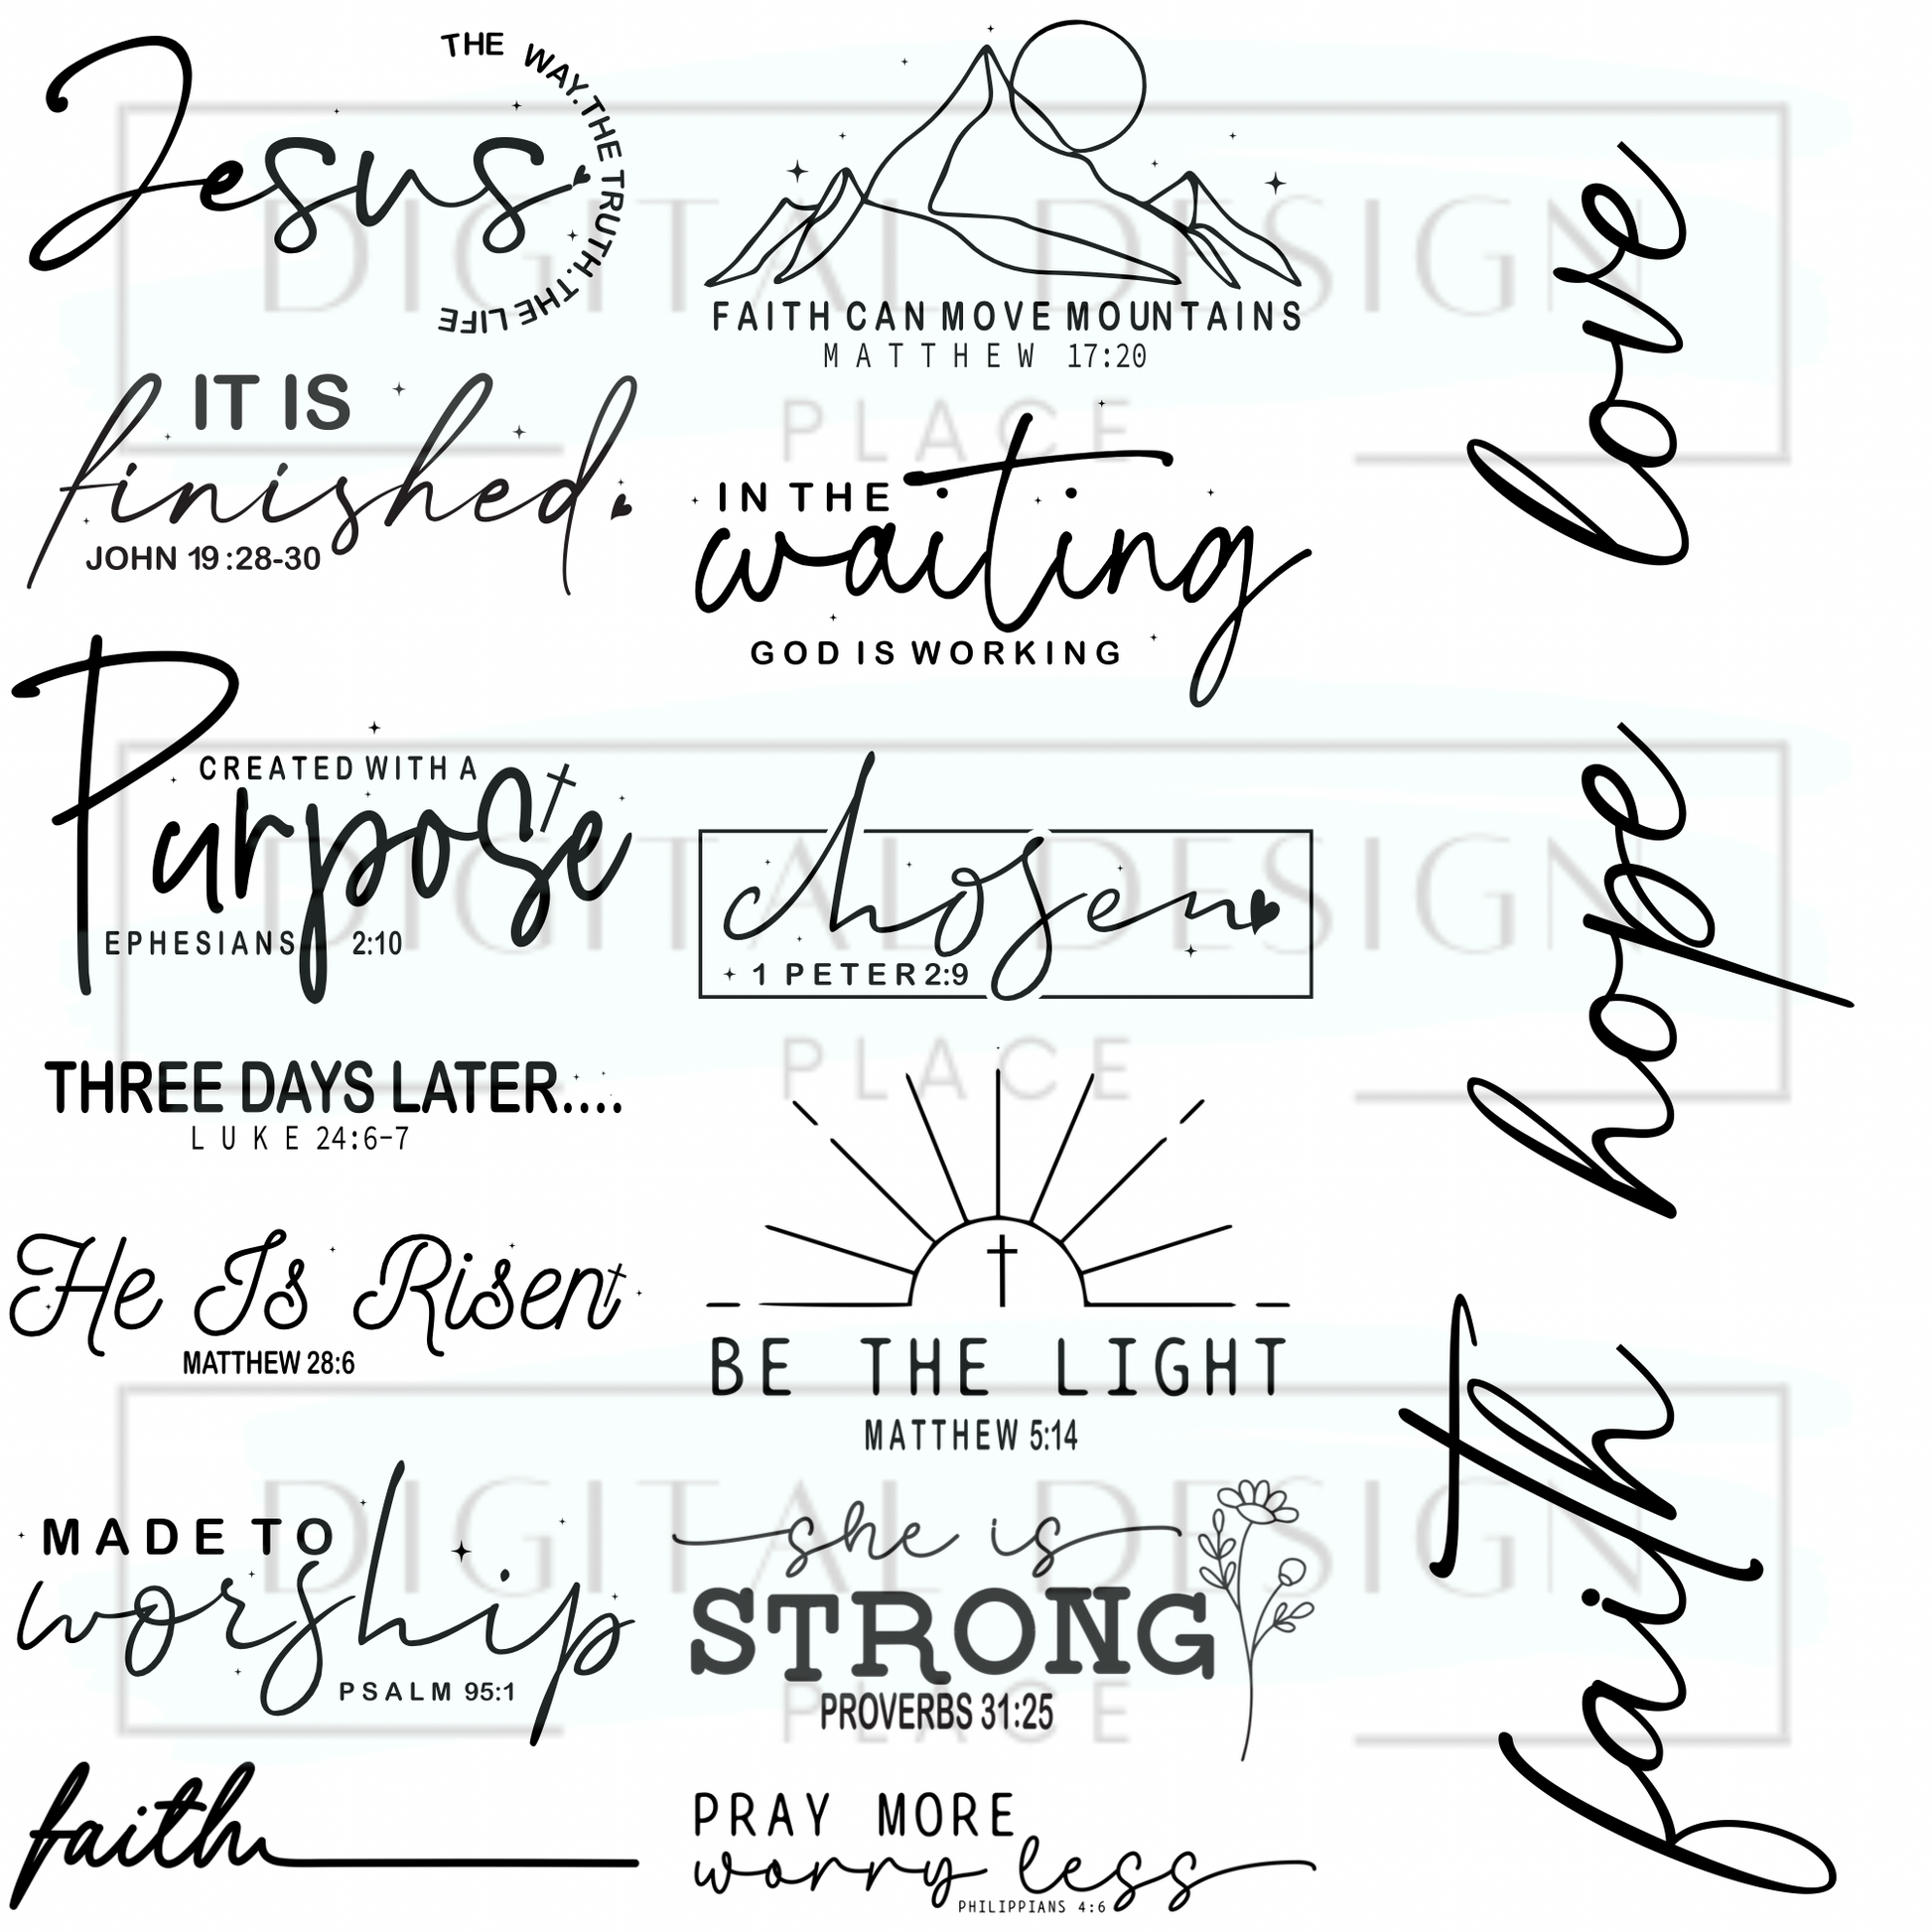 Jesus
THE WAY.THE TRUTH.THE LIFE
IT IS
finished
JOHN 19:28-30
Purpose
CREATED WITH A
EPHESIANS 2:10
THREE DAYS LATER....
LUKE 24:6-7
He Is Risen
MATTHEW 28:6
MADE TO
worship
PSALM 95:1
faith
FAITH CAN MOVE MOUNTAINS
MATTHEW 17:20
IN THE
waiting
GOD IS WORKING
chosen
1 PETER 2:9
BE THE LIGHT
MATTHEW 5:14
she is
STRONG
PROVERBS 31:25
PRAY MORE
worry less
PHILIPPIANS 4:6
love
hope
faith
DIGITAL DESIGN
PLACE
DIGITAL DESIGN
PLACE
DIGITAL DESIGN
PLACE